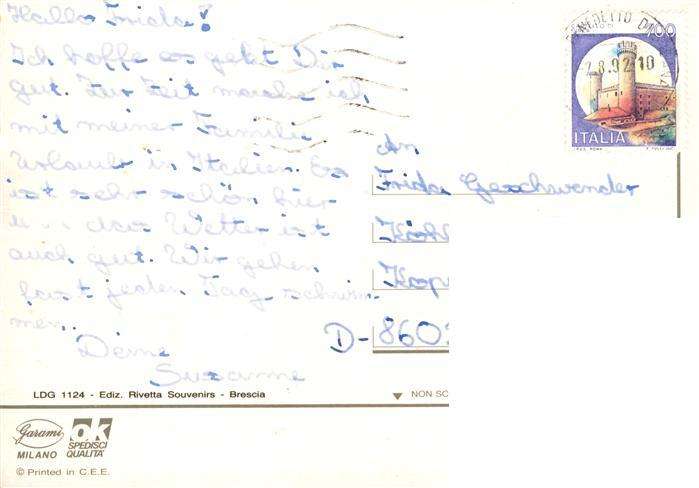 Hallo Frida!
Ich hoffe es geht Dir
gut. Zur Zeit mache ich
mit meiner Familie
Urlaub in Italien. Es
ist sehr schön hier
u. das Wetter ist
auch gut. Wir gehen
fast jeden Tag schwim-
men.
Deine
Susanne
An
Frida Geschwender
D-8602
LDG 1124 - Ediz. Rivetta Souvenirs - Brescia
NON SC
Garami
MILANO
OK
SPEDISCI
QUALITÀ
© Printed in C.E.E.
700
ITALIA
.8.92 10